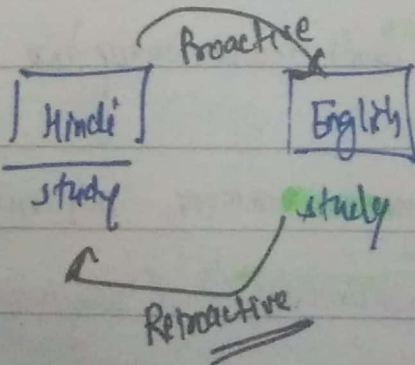 Proactive
Hindi English
study study
Retroactive